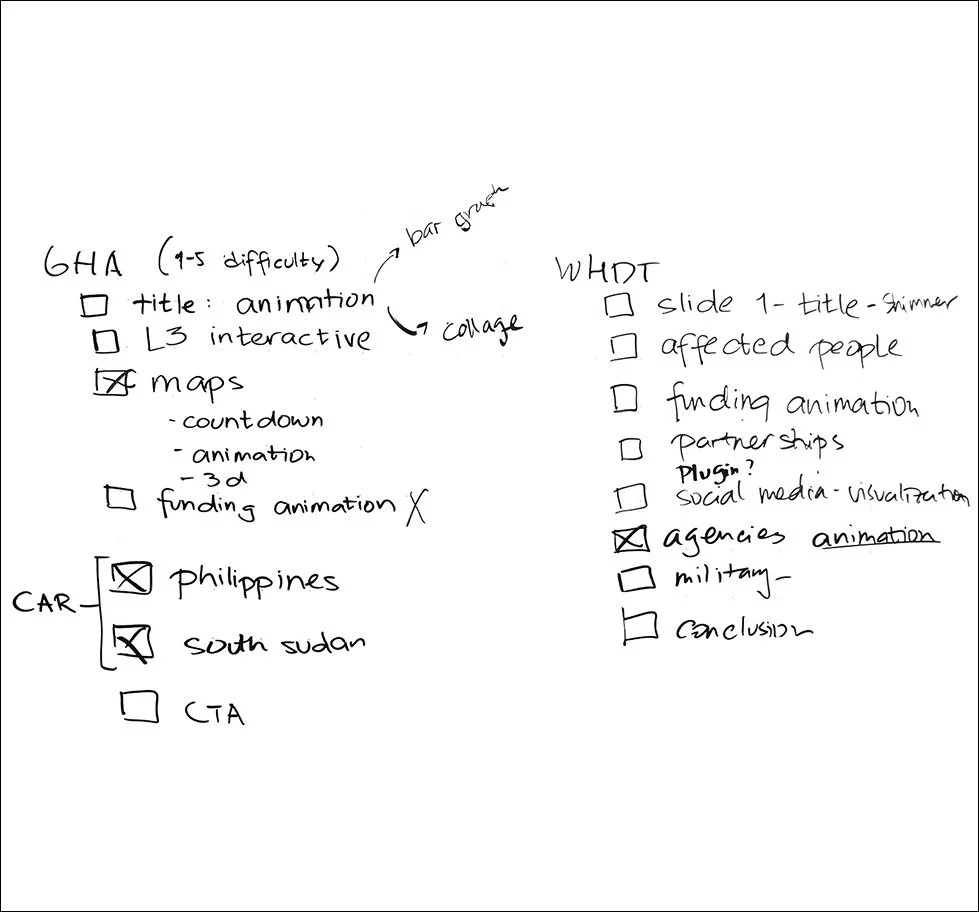 GHA (1-5 difficulty)
bar graph
☐ title: animation
collage
☐ L3 interactive
☒ maps
- countdown
- animation
- 3d
☐ funding animation X
CAR
☒ philippines
☒ south sudan
☐ CTA
WHDT
☐ slide 1 - title - shimmer
☐ affected people
☐ funding animation
☐ partnerships
Plugin?
☐ social media - visualization
☒ agencies animation
☐ military -
☐ conclusion